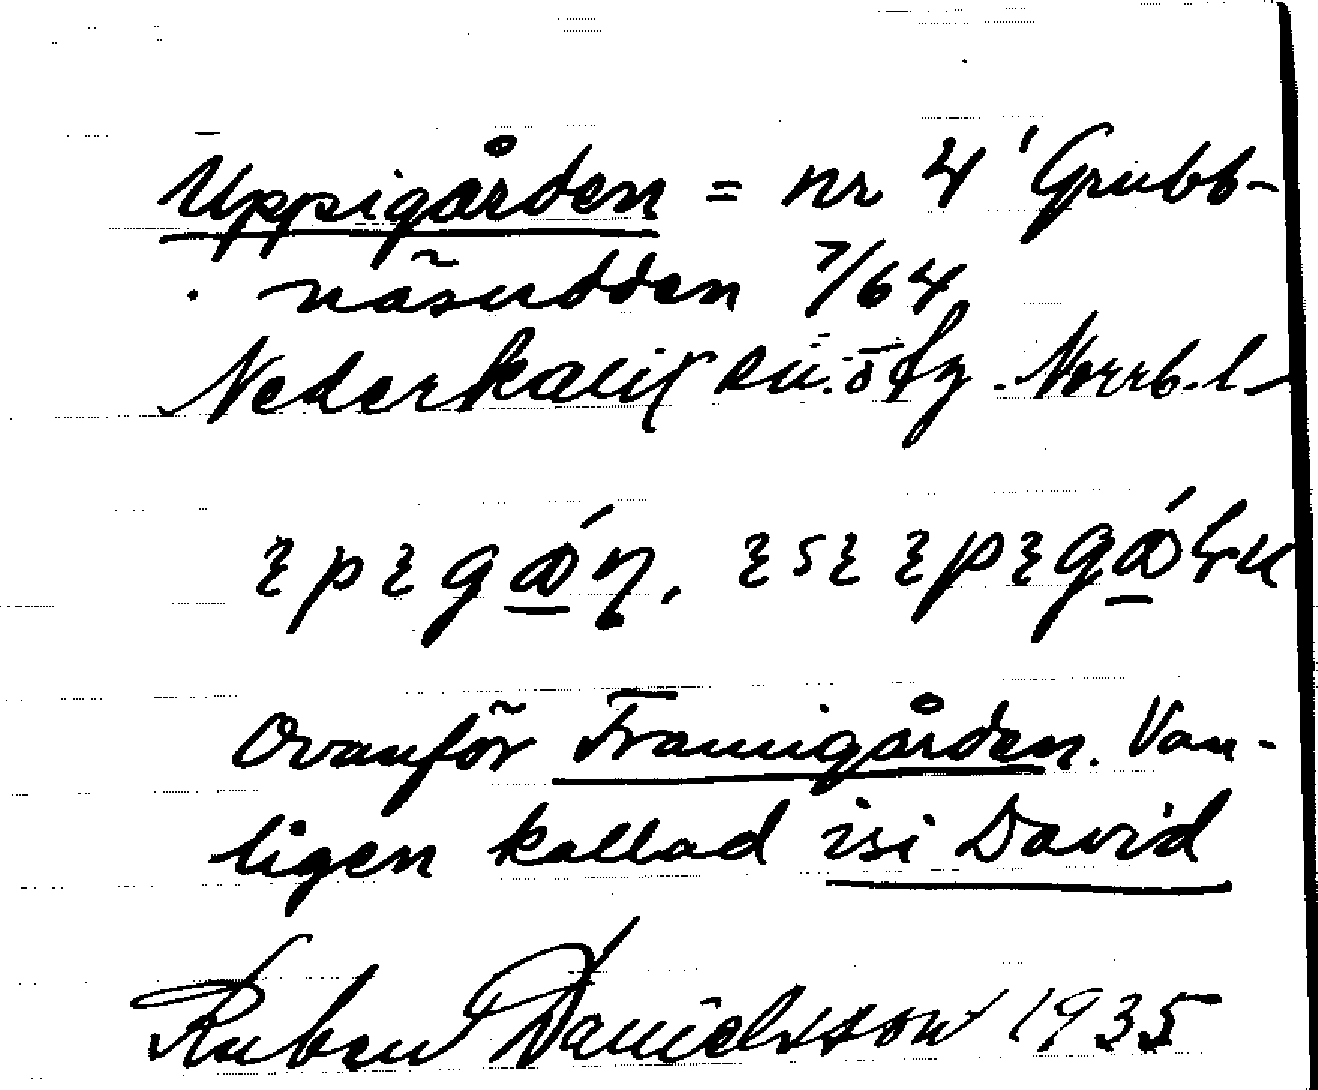 Uppigården = nr 4 Grubb-
näsudden 7/64
Nederkalix sn. ö fg. Norrb. l
Ovanför Framigården. Van-
ligen kallad isi David
Ruben Danielsson 1935